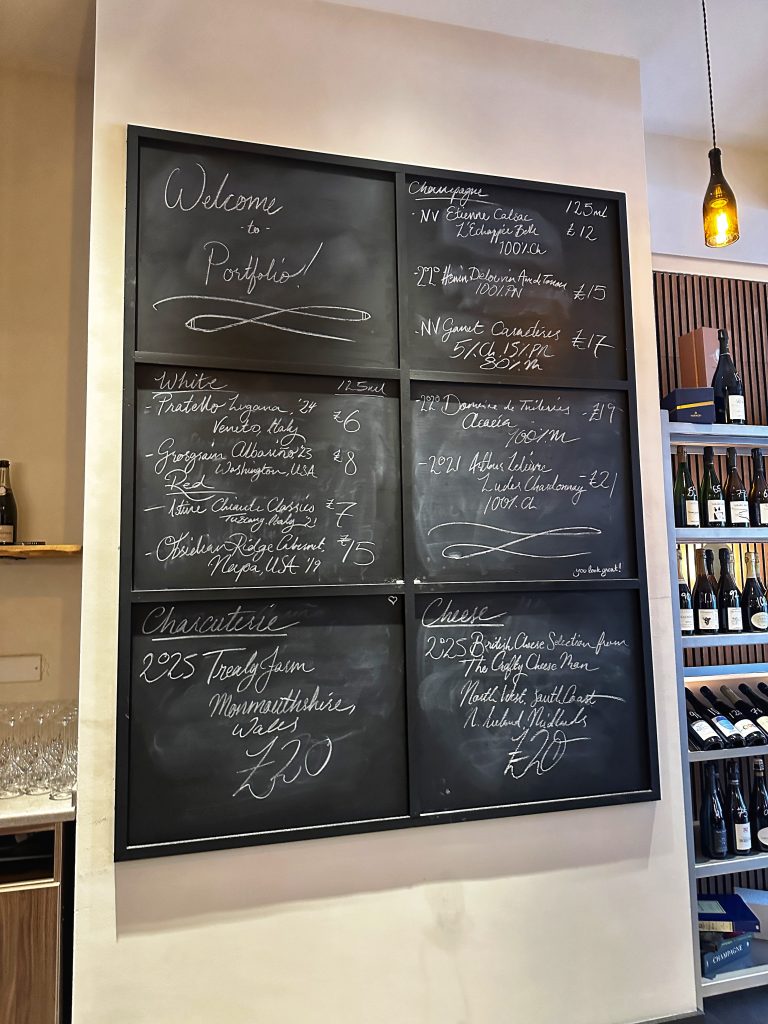 Welcome
- to -
Portfolio!
Champagne 125ml
- NV Etienne Calsac £12
L'Echappée Belle
100% Ch
Henin Delouvin £15
100% PN
- NV Gamet £17
5% Ch 15% PN
80% M
White 125ml
- Pratello Lugana '24 £6
Veneto, Italy
- Grosgrain Albariño '23 £8
Washington, USA
Red
- Istine Chianti Classico £7
Tuscany Italy 21
- Obsidian Ridge Cabernet £15
Napa, USA '19
Domaine de £19
Acacia
100% M
- 2021 Arthus Lelièvre - £21
Ludes Chardonnay
100% Ch
you look great!
Charcuterie
2025 Trealy Farm
Monmouthshire,
Wales
£20
Cheese
2025 British Cheese Selection from
The Crafty Cheese Man
North West, South Coast
N. Ireland, Midlands
£20
CHAMPAGNE